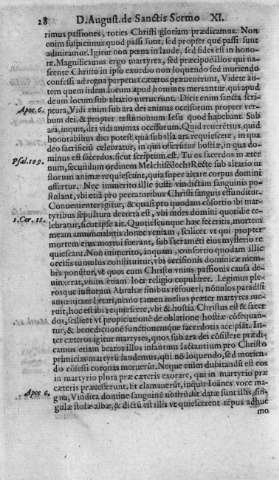 28 D. August. de Sanctis Sermo XI.
rimus passiones, toties Christi gloriam prædicamus. Non
enim suspicimus quod passi sunt, sed propter quæ passi sunt
admiramur. Igitur non pœna in laude, sed fides est in hono-
re. Magnificamus ergo martyres, sed præcipuè illos qui na-
scente Christo in ipso exordio non loquendo sed moriendo
confessi
dem quem locum apud homines mereantur, qui apud
deum locum sub altario meruerunt. Dicit enim sancta scri-
Apoc. 6. ptura, Vidi animas sub ara dei animas occisorum propter ver-
bum dei, & propter testimonium Iesus quod habebant. Sub
ara, inquit, dei vidi animas occisorum. Quid reverentius, quid
honorabilius dici potest, quàm sub illa ara requiescere, in qua
deo sacrificium celebratur, in qua offeruntur hostiæ, in qua do-
Psal. 109. minus est sacerdos, sicut scriptum est, Tu es sacerdos in æter-
num, secundum ordinem Melchisedech? Rectè sub altario iu-
storum animæ requiescunt, quia super altare corpus domini
offertur. Nec immeritò illic iustis vindictam sanguinis po-
stulant, ubi etiam pro peccatoribus Christi sanguis effunditur.
Convenienter igitur, & quasi pro quodam consortio ibi mar-
tyribus sepultura decreta est, ubi mors domini quotidie ce-
1. Cor. 11. lebratur, sicut ipse ait, Quotiescunque hæc feceritis, mortem
meam annunciabitis donec veniam, scilicet ut qui propter
mortem eius mortui fuerant, sub sacramenti eius mysterio re-
quiescant. Non immeritò, inquam, consortio quodam illic
occisis tumulus constituitur, ubi occisionis dominicæ mem-
bra ponuntur, ut quos cum Christo unius passionis causa de-
vinxerat, unius etiam loci religio copularet. Legimus ple-
rosque iustorum Abrahæ sinibus refoveri, nonnullos paradisi
amœnitate lætari, nemo tamen melius præter martyres me-
ruit, hoc est ibi requiescere, ubi & hostia Christus est & sacer-
dos, scilicet ut propitiationem de oblatione hostiæ consequan-
tur, & benedictionem functionemque sacerdotis accipiant.
Beatos igitur martyres, quos sub ara dei consistere prædi-
camus etiam beatos illos infantium lactantium pro Christo
primitias martyrij laudemus, qui non loquendo, sed morien-
do confessi coronari meruerunt. Neque enim dubitandum est eos
in martyrio plura præ cæteris exorare, qui in martyrio præ
cæteris præcesserunt. Et clamaverunt, inquit Ioannes voce ma-
Apoc. 6. gna, Vindica domine sanguinem nostrum: & datæ sunt illis sin-
gulæ stolæ albæ, & dictum est illis ut quiescerent tempus adhuc
mo